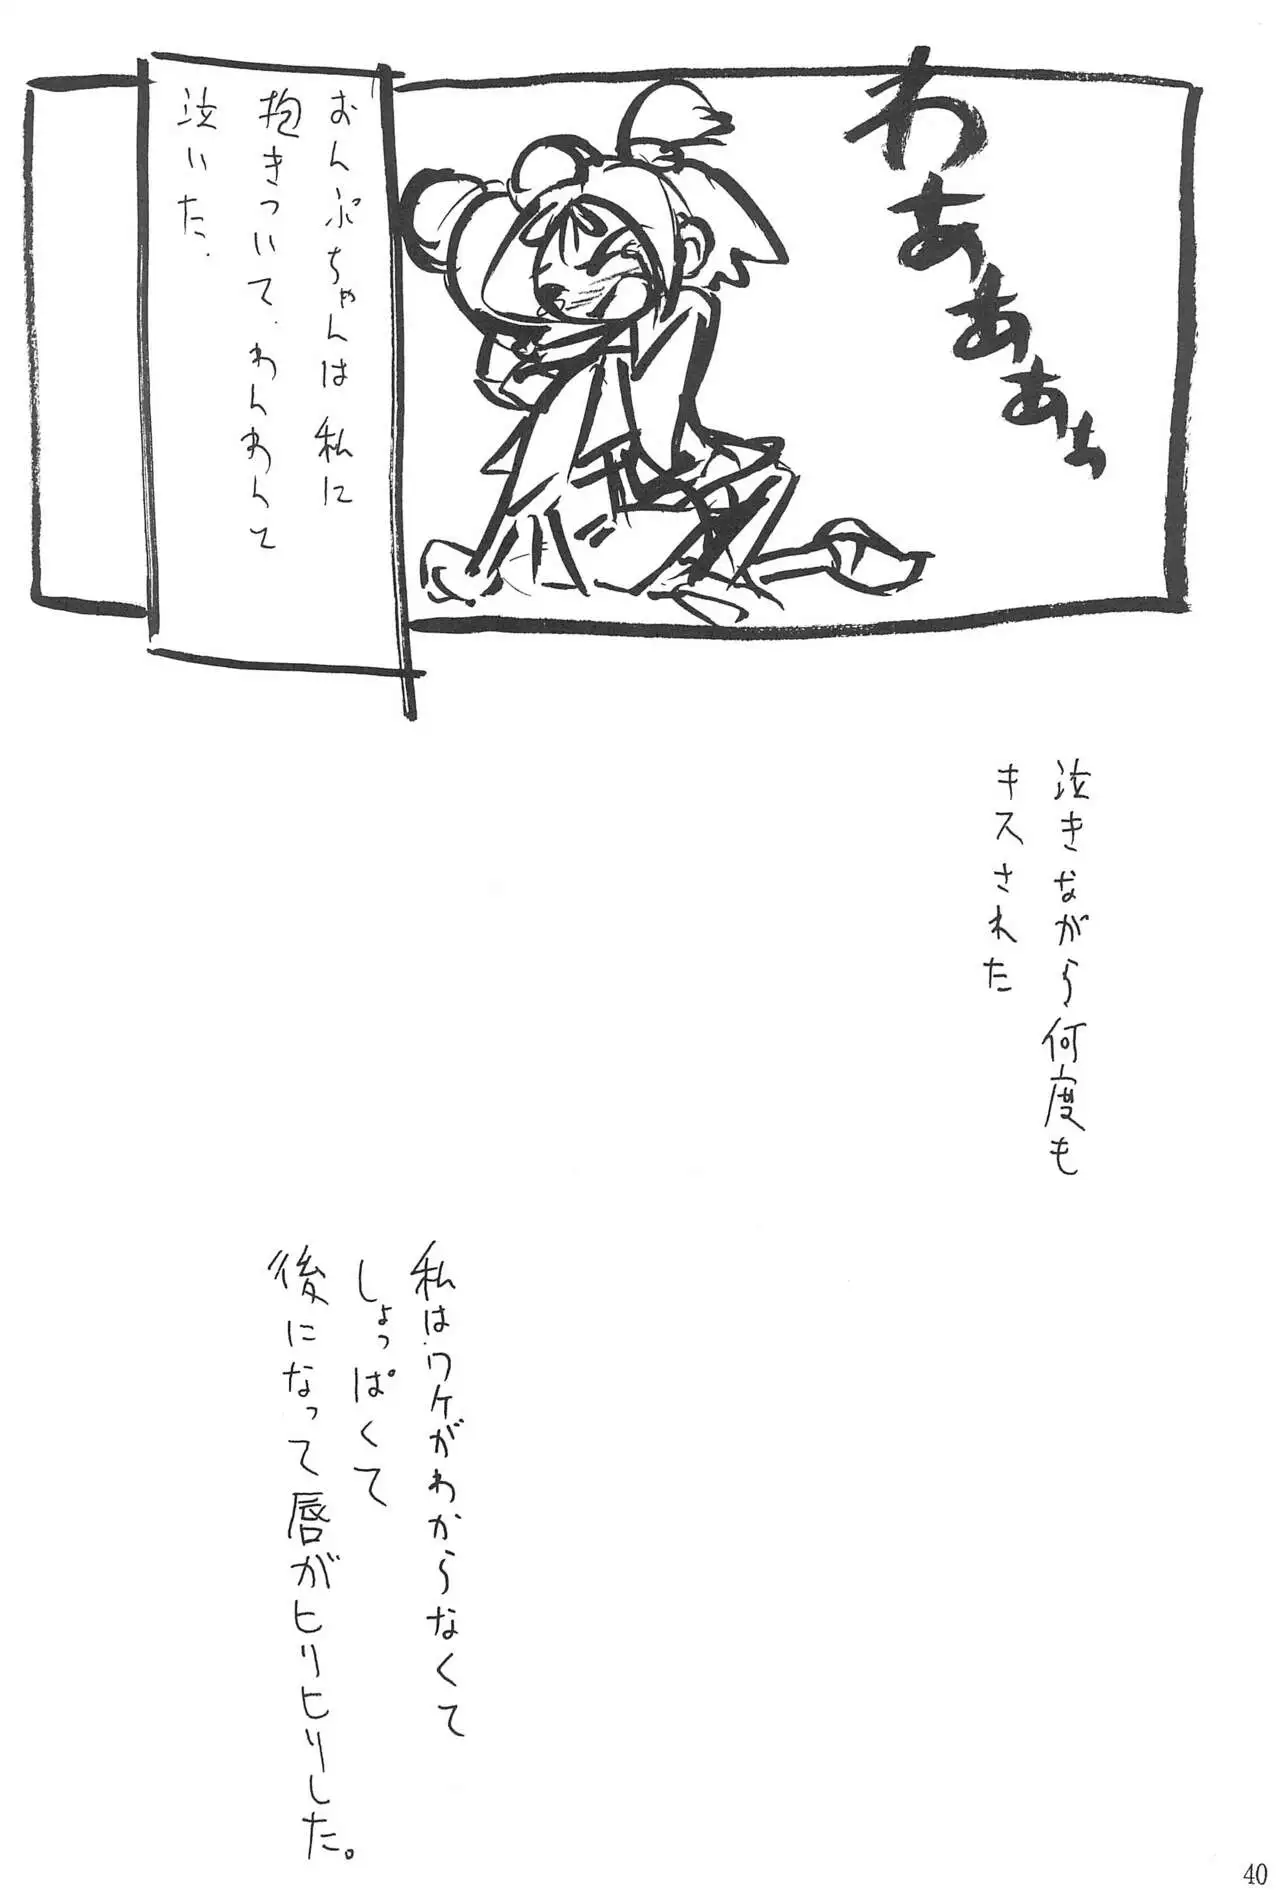 わぁぁぁぁ
おんぷちゃんは私に
抱きついて、わんわんて
泣いた.
泣きながら何度も
キスされた
私はワケがわからなくて
しょっぱくて
後になって唇がヒリヒリした。
40